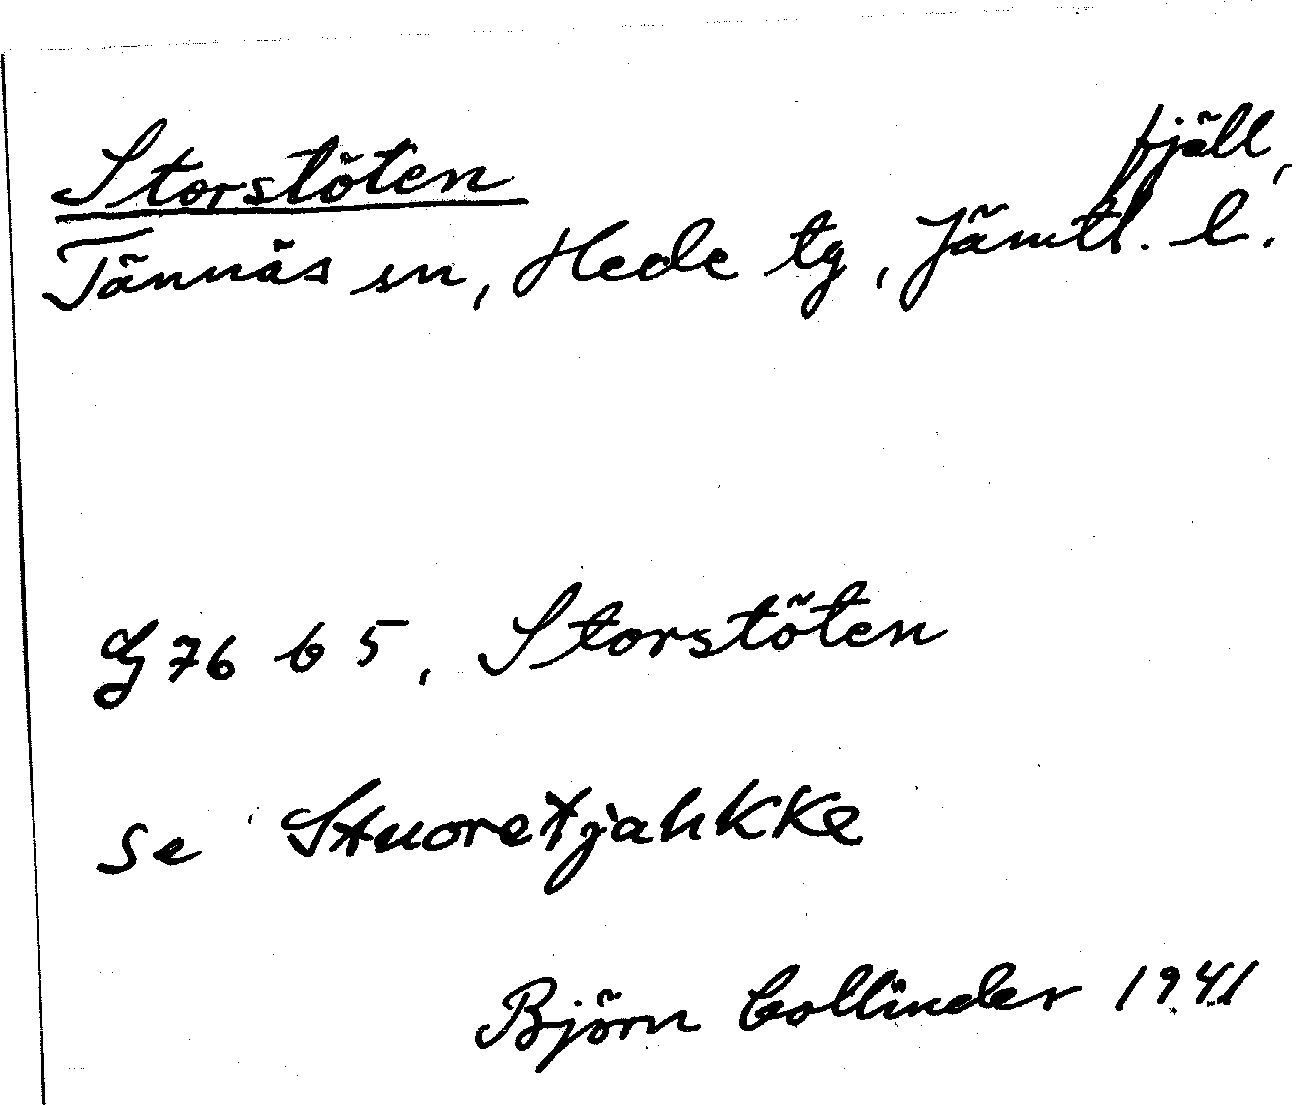 Storstöten fjäll,
Tännäs sn, Hede tg, Jämtl. l.
G 76 b 5, Storstöten
se Stuoretjahkke
Björn Collinder 1941